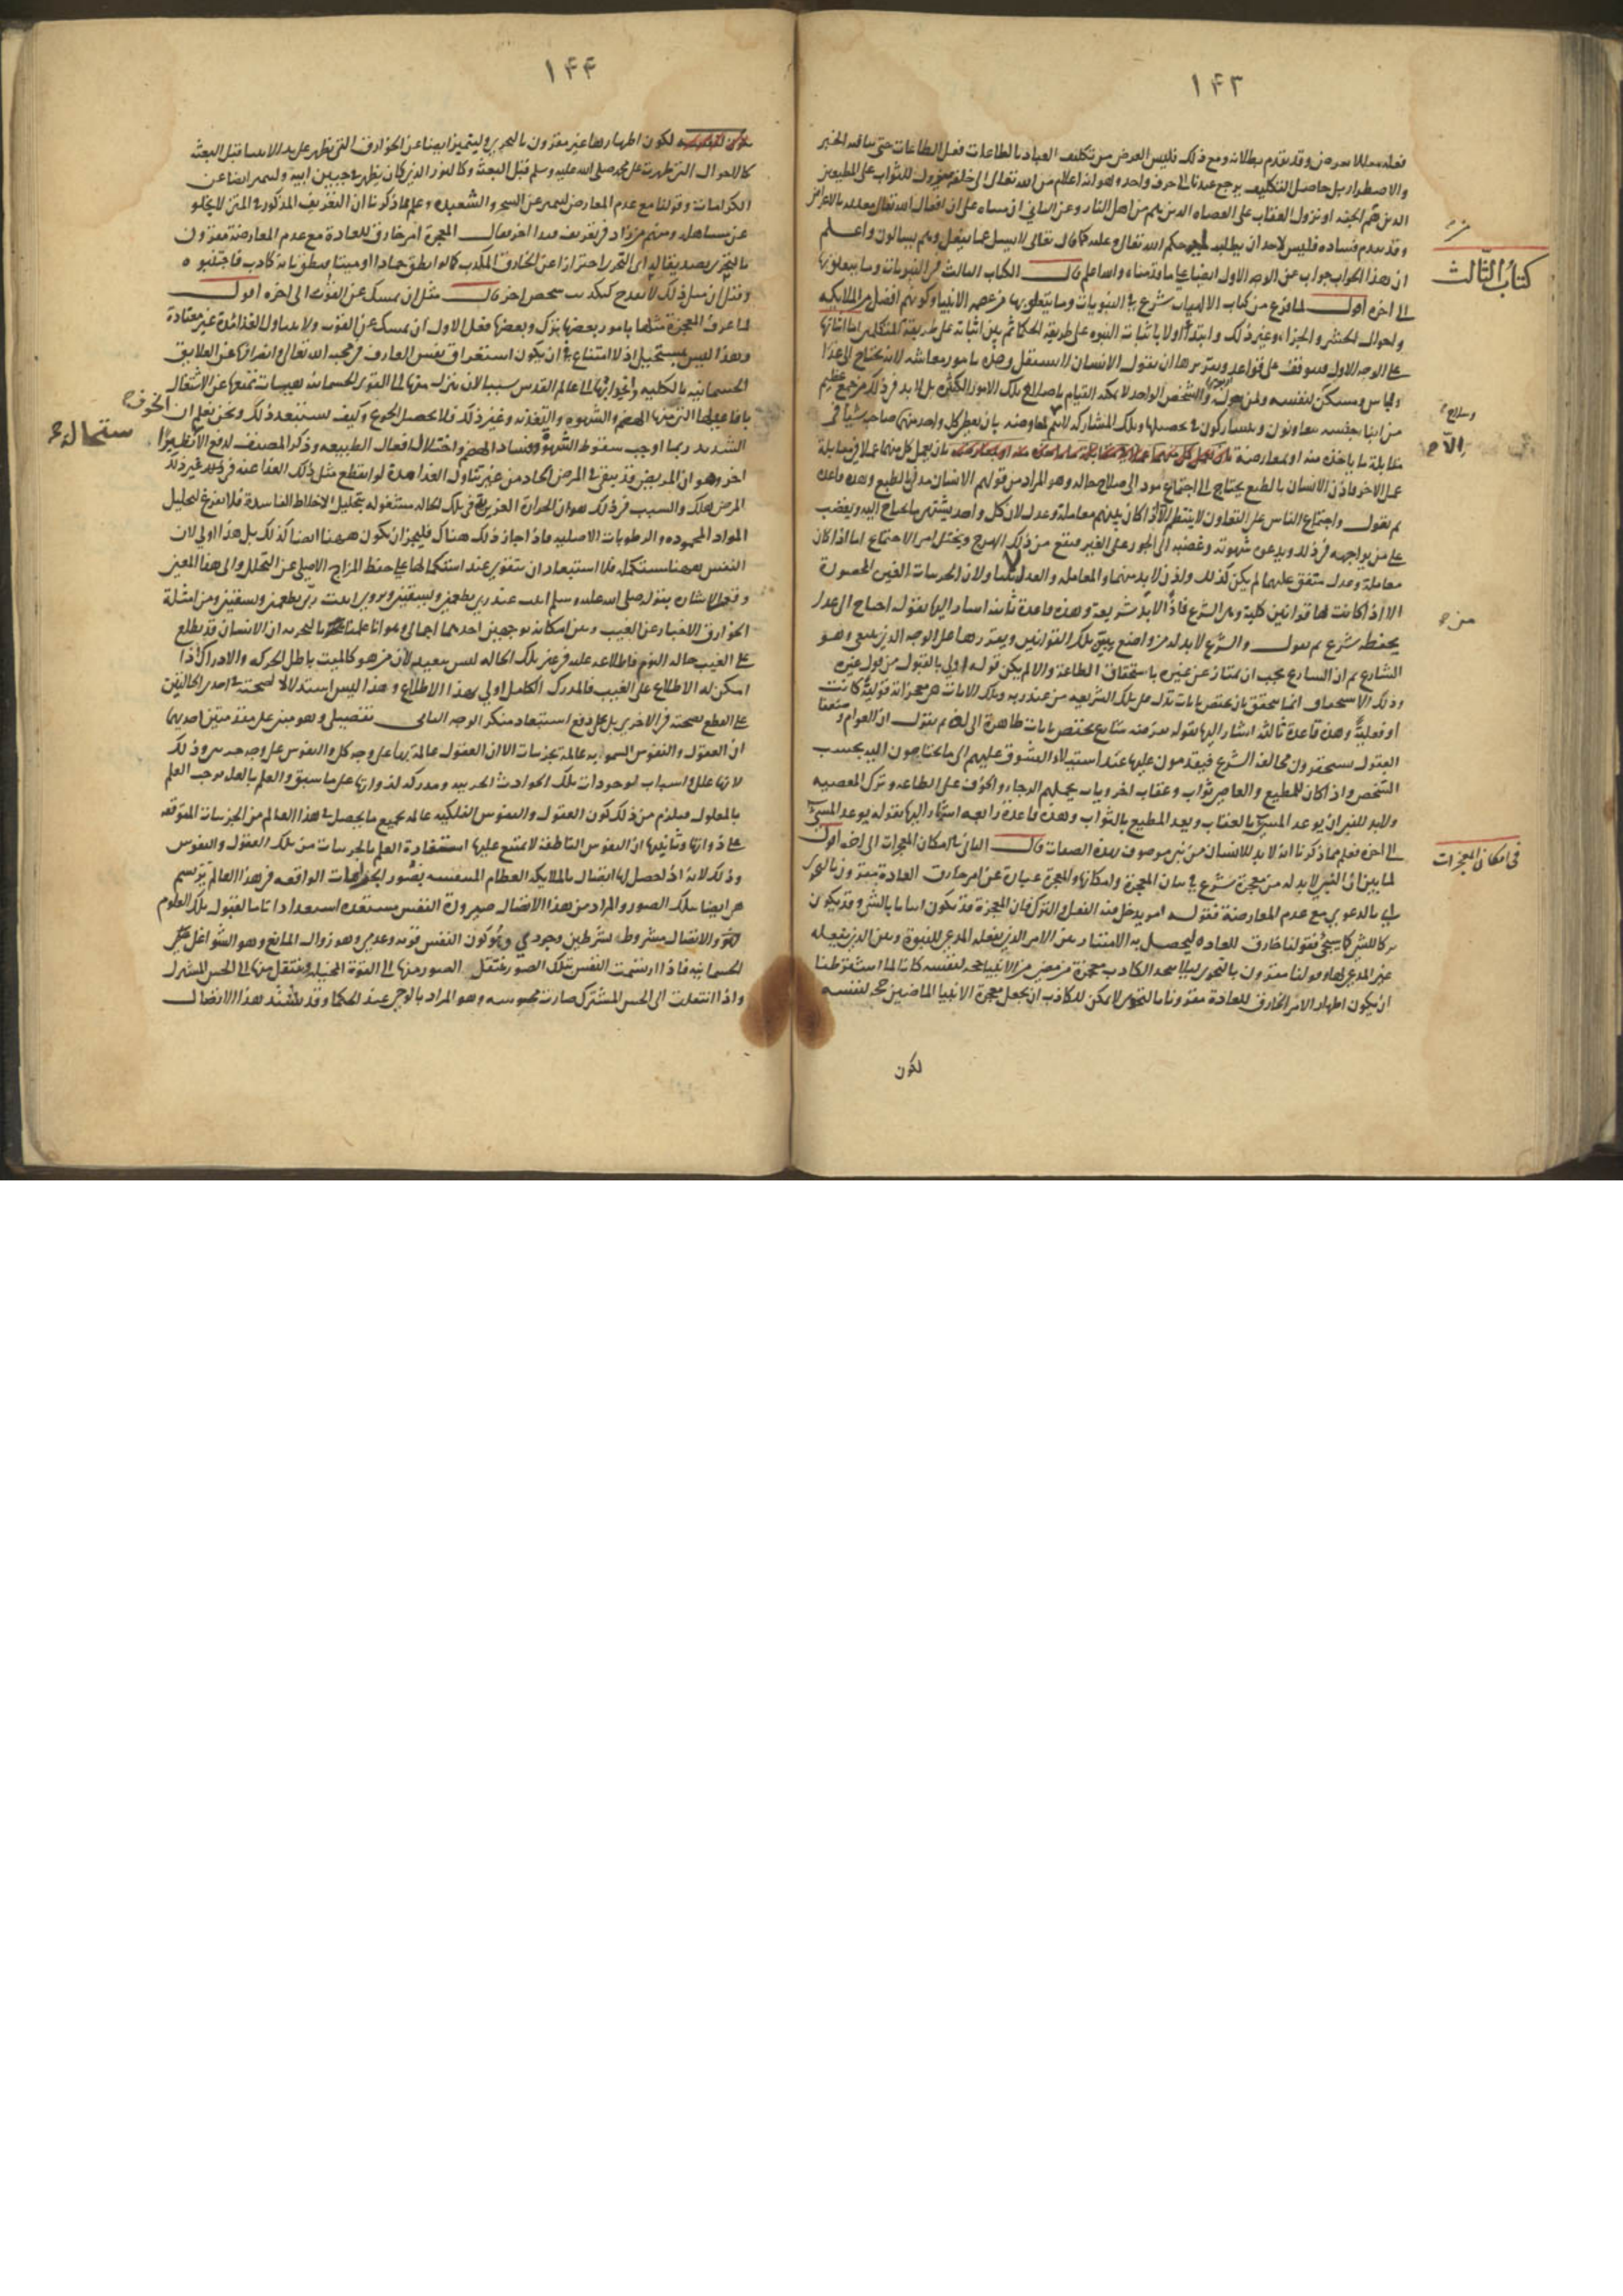 ١٤٣
فعله معللا بغرض وقد تقدم بطلانه ومع ذلك فليس الغرض من تكليف العباد بالطاعات فعل الطاعات حتى ينافيه الجبر
والاضطرار بل حاصل التكليف يرجع عندنا الى حرف واحد وهو انه اعلام من الله تعالى الى خلقه بنزول الثواب على المطيعين
الذين هم الجنة او نزول العقاب على العصاة الذين هم من اهل النار وعن الثاني ان مبناه على ان افعال الله تعالى معللة بالاغراض
وقد تقدم فساده فليس لاحد ان يطلب حكم الله تعالى وعلله كما قال تعالى لا يسئل عما يفعل وهم يسالون واعلم
ان هذا الجواب جواب عن الوجه الاول ايضا على ما قدمناه والله اعلم قال الكتاب الثالث في النبويات وما يتعلق بها
الى اخره اقول لما فرغ من كتاب الالهيات شرع في النبويات وما يتعلق بها من عصمة الانبياء وكونهم افضل من الملائكة
واحوال الحشر والجزاء وغير ذلك وابتدأ اولا باثبات النبوة على طريقة الحكما ثم بين اثباته على طريقة المتكلمين اما اثباتها
على الوجه الاول فموقف على قواعد وتقريرها ان نقول الانسان لا يستقل وحده بامور معاشه لانه يحتاج الى غذا
ولباس ومسكن لنفسه ولمن يعوله والشخص الواحد لا يمكنه القيام باصلاح تلك الامور الكثيرة بل لا بد في ذلك من جمع عظيم
من ابناء جنسه يعاونون ويتشاركون في تحصيلها وتلك المشاركة لا تتم الا بمعاوضة بان يعطي كل واحد منهما صاحبه شيأ في
مقابلة ما ياخذه منه او بمعارضة بان يعمل كل منهما عملا في مقابلة
عمل الاخر فاذن الانسان بالطبع يحتاج الى اجتماع مود الى صلاح حاله وهو المراد من قولهم الانسان مدني بالطبع وهذه قاعدة
ثم نقول واجتماع الناس على التعاون لا ينتظم الا اذا كان بينهم معاملة وعدل لان كل واحد يشتهي ما يحتاج اليه ويغضب
على من يزاحمه في ذلك ويدعوه شهوته وغضبه الى الجور على الغير فيقع من ذلك الهرج ويختل امر الاجتماع اما اذا كان
معاملة وعدل متفق عليهما لم يكن كذلك ولذن لا بد منهما والمعاملة والعدل لا يتناولان الجزئيات الغير المحصورة
الا اذا كانت لها قوانين كلية وهي الشرع فاذًا لا بد من شريعة وهذه قاعدة ثانية اشار اليها بقوله احتاج الى عدل
يحفظه شرع ثم نقول والشرع لا بد له من واضع يبين تلك القوانين ويقررها على الوجه الذي ينبغي وهو
الشارع ثم ان الشارع يجب ان يمتاز عن غيره باستحقاق الطاعة والا لم يكن قوله اولى بالقبول من قول غيره
وذلك الاستحقاق انما يتحقق بان يختص بايات تدل على تلك الشريعة من عند ربه وتلك الايات هي معجزاته قولية كانت
او فعلية وهذه قاعدة ثالثة اشار اليها بقوله يفرضه شارع يختص بايات ظاهرة الى اخره ثم نقول ان العوام وضعفا
العقول يستحقرون مخالفة الشرع فيقدمون عليها عند استيلاء الشوق عليهم الى ما يحتاجون اليه بحسب
الشخص واذا كان للمطيع والعاصي ثواب وعقاب اخرويان يحملهم الرجاء والخوف على الطاعة وترك المعصية
ولابد للنبي ان يوعد المسيئ بالعقاب ويعد المطيع بالثواب وهذه قاعدة رابعة اشار اليها بقوله يوعد المسيئ
الى اخره فعلم مما ذكرنا انه لا بد للانسان من نبي موصوف بهذه الصفات قال الثاني في امكان المعجزات الى اخره اقول
لما بين ان النبي لا بد له من معجزة شرع في بيان المعجزة وامكانها والمعجزة عبارة عن امر خارق العادة مقرون بالتحدي
اي بالدعوى مع عدم المعارضة فقوله امر يدخل فيه الفعل والترك فان المعجزة قد تكون اتيانا بالشئ وقد تكون
تركا للشئ كما سيجئ وقولنا خارق للعادة ليحصل به الامتياز بين الامر الذي يفعله المدعي للنبوة وبين الذي يفعله
غير المدعي لها وقولنا مقرون بالتحدي ليلا يتخذ الكاذب معجزة من مضى من الانبياء حجة لنفسه كانا لما اشترطنا
ان يكون اظهار الامر الخارق للعادة مقرونا بالتحدي لا يمكن للكاذب ان يجعل معجزة الانبيا الماضين حجة لنفسه
لكون
كتاب الثالث
في امكان المعجزات
١٤٤
لكون اظهارها غير مقرون بالتحدي وليتميز ايضا عن الخوارق التي يظهر على يد الانبيا قبل البعثة
كالاحوال التي ظهرت على محمد صلى الله عليه وسلم قبل البعثة وكالنور الذي كان يظهر في جبين ابيه وليتميز ايضا عن
الكرامات وقولنا مع عدم المعارض ليتميز عن السحر والشعبذة وعلم مما ذكرنا ان التعريف المذكور في المتن لا يخلو
عن مساهلة ومنهم من زاد في تعريف قيدا اخر فقال المعجزة امر خارق للعادة مع عدم المعارضة مقرون
بالتحدي يصدقه اي التحدي احترازا عن الخارق المكذب كما لو انطق جمادا او ميتا ونطق بانه كاذب فاجتنبوه
وقيل ان مثل ذلك لا يقدح كتكذيب شخص اخر قال مثل ان يمسك عن القوت الى اخره اقول
لما عرف المعجزة مثلها بامور بعضها بترك وبعضها فعل الاول ان يمسك عن القوت ولا يتناول الغذا مدة غير معتادة
وهذا ليس بمستحيل اذ لا امتناع في ان يكون استغراق نفس العارف في محبة الله تعالى وانصرافها عن العلايق
الجسمانية بالكلية وانجذابها الى عالم القدس سببا لان ينزل منها الى القوى الجسمانية هيئات تمنعها عن الاشتغال
بافاعيلها التي منها الهضم والشهوة والتغذية وغير ذلك فلا يحصل الجوع وكيف يستبعد ذلك ونحن نعلم ان الخوف
الشديد ربما اوجب سقوط الشهوة وفساد الهضم واختلال افعال الطبيعة وذكر المصنف لدفع الا نظيرًا
اخر وهو ان المريض قد يبقى في المرض الحاد من غير تناول الغذا مدة لو انقطع مثل ذلك الغذا عنه في غير ذلك
المرض هلك والسبب في ذلك هو ان الحرارة الغريزية في تلك الحالة مشغولة بتحليل الاخلاط الفاسدة فلا تفرغ لتحليل
المواد المحمودة والرطوبات الاصلية فاذا جاز ذلك هناك فليجز ان يكون ههنا ايضا كذلك بل هذا اولى لان
النفس ههنا مستكملة فلا استبعاد ان تتقوى عند استكمالها على حفظ المزاج الاصلي عن التحلل والى هذا المعنى
وقع الاشارة بقوله صلى الله عليه وسلم ابيت عند ربي يطعمني ويسقيني ويروى ابيت ربي يطعمني ويسقيني ومن امثلة
الخوارق الاخبار عن الغيب وبين امكانه بوجهين احدهما اجمالي وهو انا علمنا بالتجربة ان الانسان قد يطلع
على الغيب حالة النوم فاطلاعه عليه في غير تلك الحالة ليس ببعيد لان من هو كالميت باطل الحركة والادراك اذا
امكن له الاطلاع على الغيب فالمدرك الكامل اولى بهذا الاطلاع وهذا ليس استدلالا لصحته في احدى الحالتين
على القطع بصحته في الاخرى بل على دفع استبعاد منكر الوجه الثاني تفصيلي وهو مبني على مقدمتين احديهما
ان العقول والنفوس السماوية عالمة بجزئيات الا ان العقول عالمة بها على وجه كلي والنفوس على وجه جزئي وذلك
لانها علل واسباب لوجودات تلك الحوادث الجزئية ومدركة لذواتها على ما سبق والعلم بالعلة يوجب العلم
بالمعلول فيلزم من ذلك كون العقول والنفوس الفلكية عالمة بجميع ما يحصل في هذا العالم من الجزئيات المتوقفة
على ذواتها وثانيهما ان النفوس الناطقة لا يمتنع عليها استفادة العلم بالجزئيات من تلك العقول والنفوس
وذلك لانه اذا حصل لها اتصال بالملايكة العظام المنتقشة بصور الواقعة في هذا العالم يرتسم
هي ايضا بتلك الصور والمراد من هذا الاتصال صيرورة النفس مستعدة استعدادا تاما لقبول تلك العلوم
والاتصال مشروط بشرطين وجودي وهو كون النفس قوية وعدمي وهو زوال المانع وهو الشواغل
الجسمانية فاذا ارتسمت النفس بتلك الصور ينتقل الصور منها الى القوة المتخيلة وينتقل منها الى الحس المشترك
واذا انتقلت الى الحس المشترك صارت محسوسة وهو المراد بالوحي عند الحكما وقد يشتد هذا الاتصال